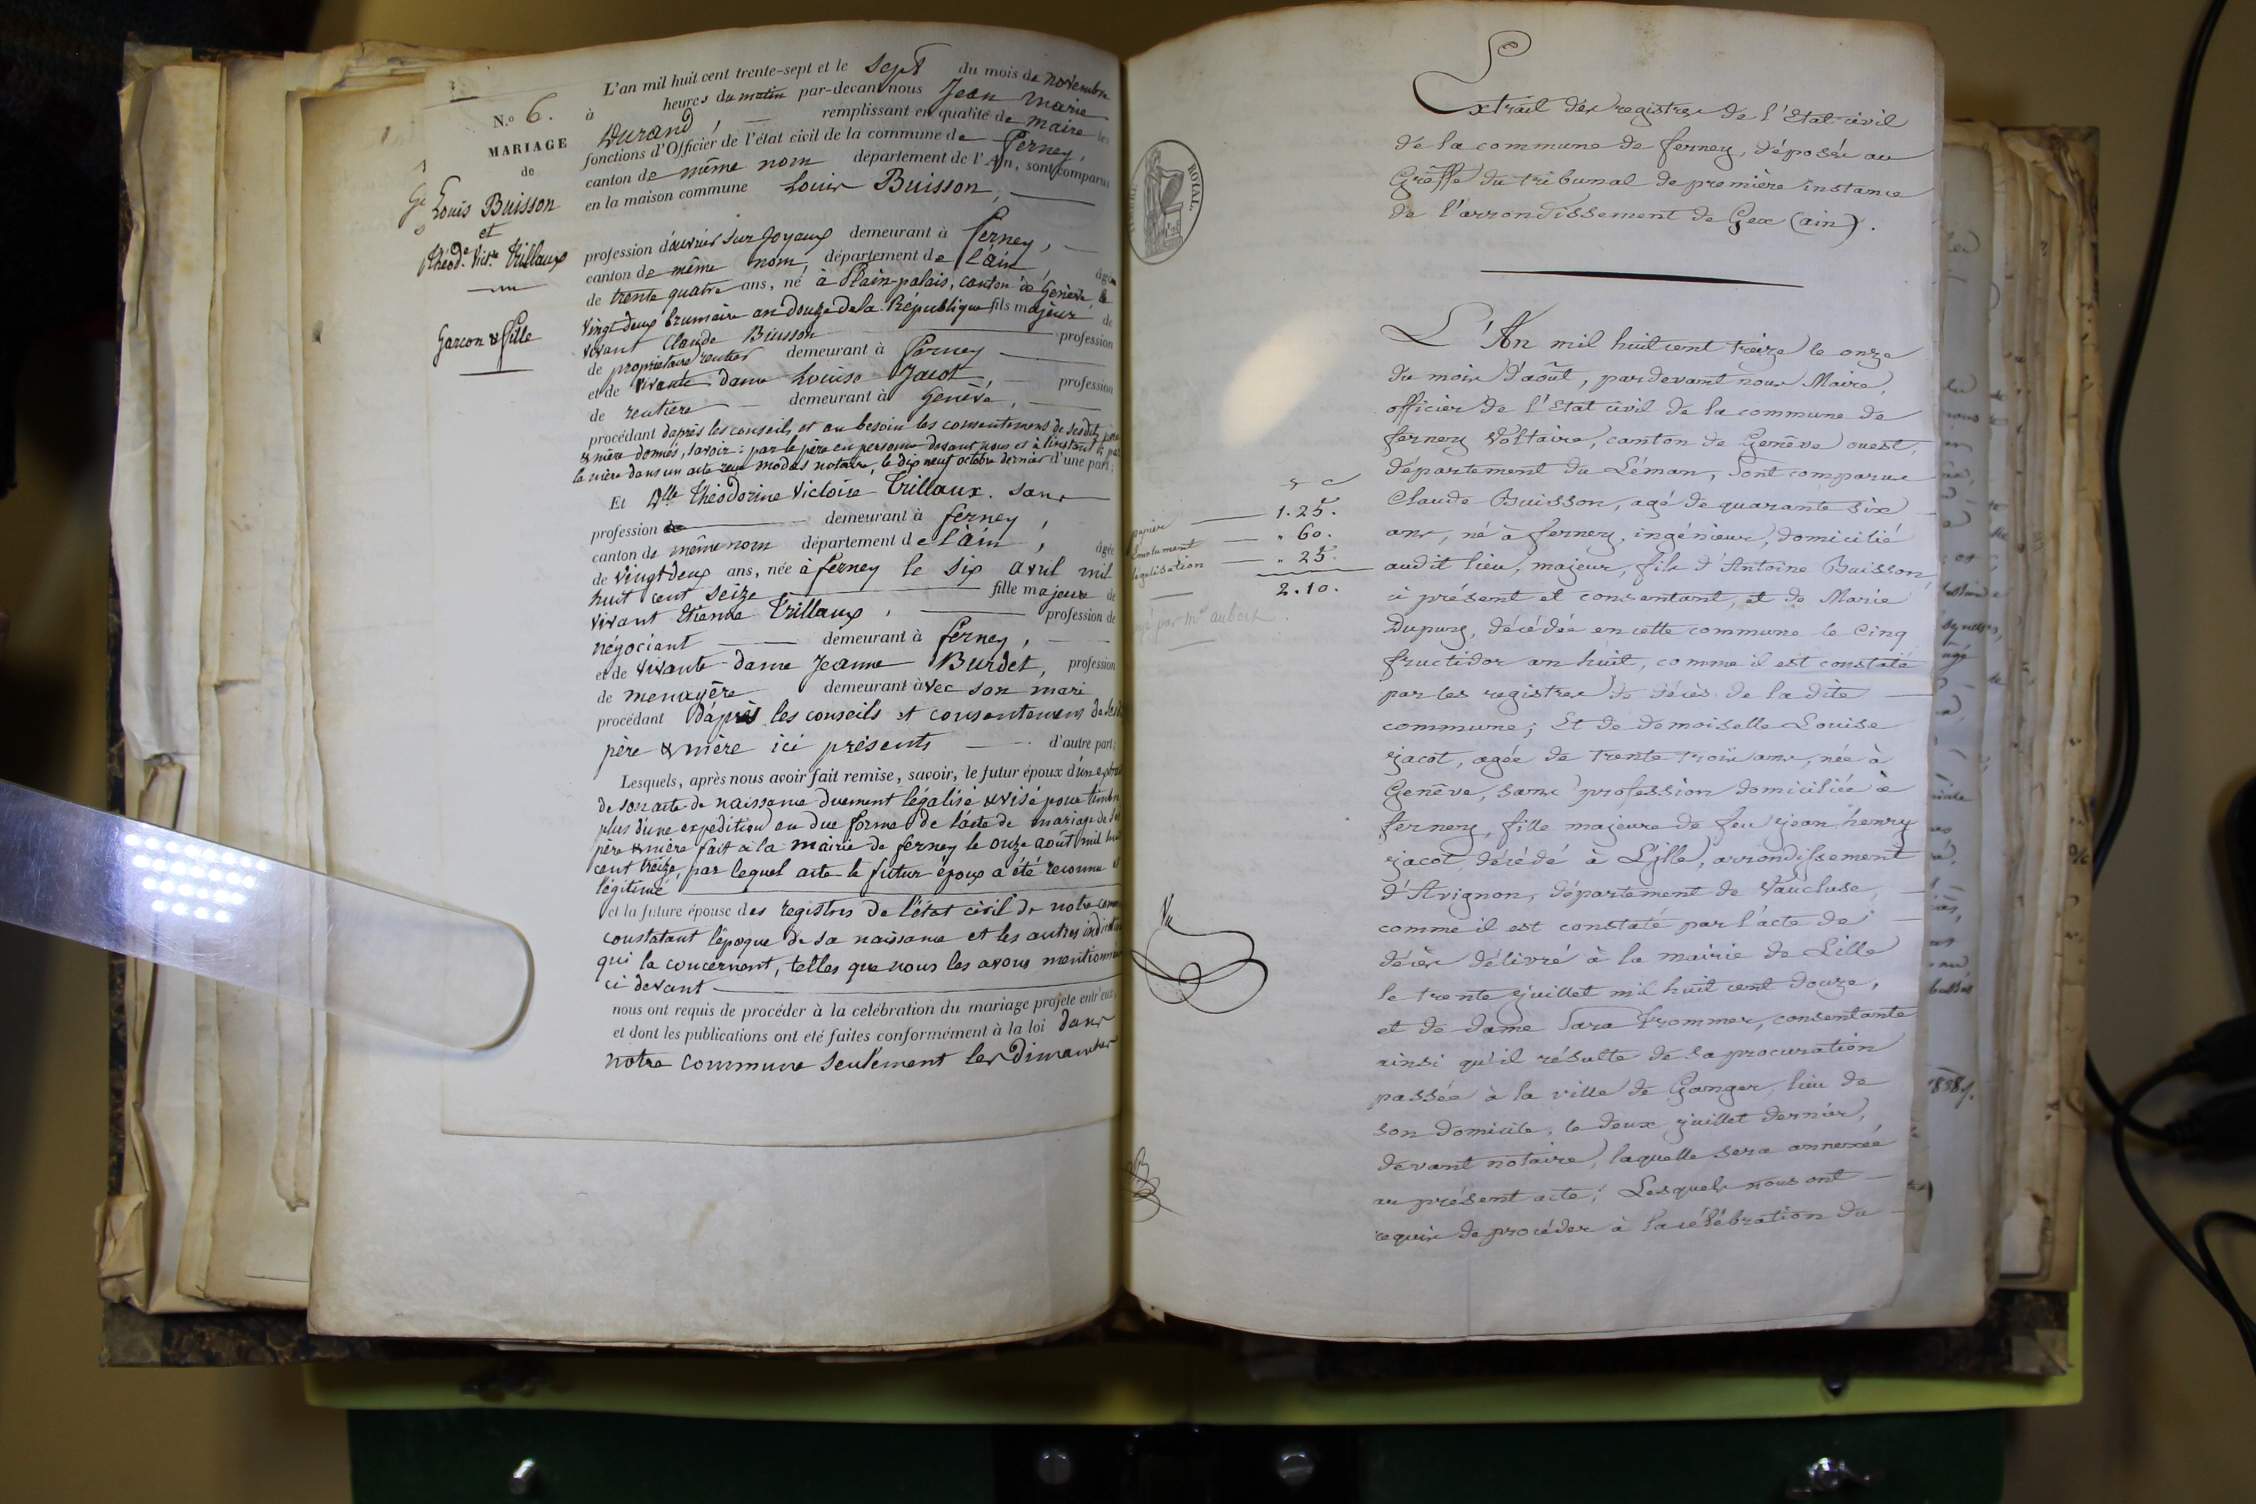 N.o 6.
MARIAGE
de
Louis Buisson
et
Théode. Victe. Trillaux
Garçon & fille
L'an mil huit cent trente-sept et le sept du mois de novembre
à heures du matin par-devant nous Jean Marie
Durand, remplissant en qualité de maire les
fonctions d'Officier de l'état civil de la commune de Ferney,
canton de même nom département de l'Ain, sont comparus
en la maison commune Louis Buisson,
profession d'ouvrier sur joyaux demeurant à ferney,
canton de même nom, département de l'ain âgé
de trente quatre ans, né à Plain-palais, canton de Genève, le
vingt deux brumaire an douze de la République fils majeur de
vivant Claude Buisson profession
de propriétaire rentier demeurant à Ferney
et de vivante dame Louise Jacot, profession
de rentière demeurant à Genève,
procédant d'après les conseils et au besoin les consentemens de sesdits père
& mère donnés, savoir: par le père en personne devant nous et à l'instant & par
la mère dans un acte reçu Modas notaire, le dix neuf octobre dernier d'une part;
Et Dlle Théodorine Victoire Trillaux. sans
profession de demeurant à ferney,
canton de même nom département de l'ain, âgée
de vingt deux ans, née à ferney le six avril mil
huit cent seize fille majeure de
vivant Etienne Trillaux, profession de
négociant demeurant à ferney,
et de vivante dame Jeanne Burdet, profession
de menagère demeurant avec son mari
procédant d'après les conseils et consentemens de sesd
père & mère ici présents d'autre part;
Lesquels, après nous avoir fait remise, savoir, le futur époux d'une
de son acte de naissance duement légalisé & visé pour timbre
plus d'une expédition en due forme de l'acte de mariage de ses
père & mère fait à la mairie de ferney le onze août mil huit
cent treize, par lequel acte le futur époux a été reconnu et
légitimé
et la future épouse des registres de l'état civil de notre
constatant l'époque de sa naissance et les autres
qui la concernent, telles que nous les avons
ci devant
nous ont requis de procéder à la celébration du mariage projeté entr'eux
et dont les publications ont été faites conformément à la loi dans
notre commune seulement les Dimanches
ROYAL.
Extrait des registres de l'Etat-civil
de la commune de ferney, déposés au
Greffe du tribunal de première instance
de l'arrondissement de Gex (ain).
L'An mil huit cent treize le onze
du mois d'août, pardevant nous Maire,
officier de l'Etat civil de la commune de
ferney Voltaire, canton de Genève ouest,
département du Léman, sont comparus
Claude Buisson, agé de quarante six
ans, né à ferney, ingénieur, domicilié
audit lieu, majeur, fils d'Antoine Buisson,
ci présent et consentant, et de Marie
Dupuy, décédée en cette commune le cinq
fructidor an huit, comme il est constaté
par les registres de décès de la dite
commune; Et de demoiselle Louise
jacot, agée de trente trois ans, née à
Genêve, sans profession domiciliée à
ferney, fille majeure de feu jean henry
jacot, décédé à Lille, arrondissement
d'Avignon, département de Vaucluse,
comme il est constaté par l'acte de
décès délivré à la mairie de Lille
le trente juillet mil huit cent douze,
et de dame Sara Trommer, consentante
ainsi qu'il résulte de sa procuration
passée à la ville de Ganges, lieu de
son domicile, le deux juillet dernier,
devant notaire, laquelle sera annexée
au présent acte; Lesquels nous ont
requis de procéder à la célébration du
papier 1.25.
Emolument " 60.
légalisation " 25.
2.10.
par me aubert
Vu